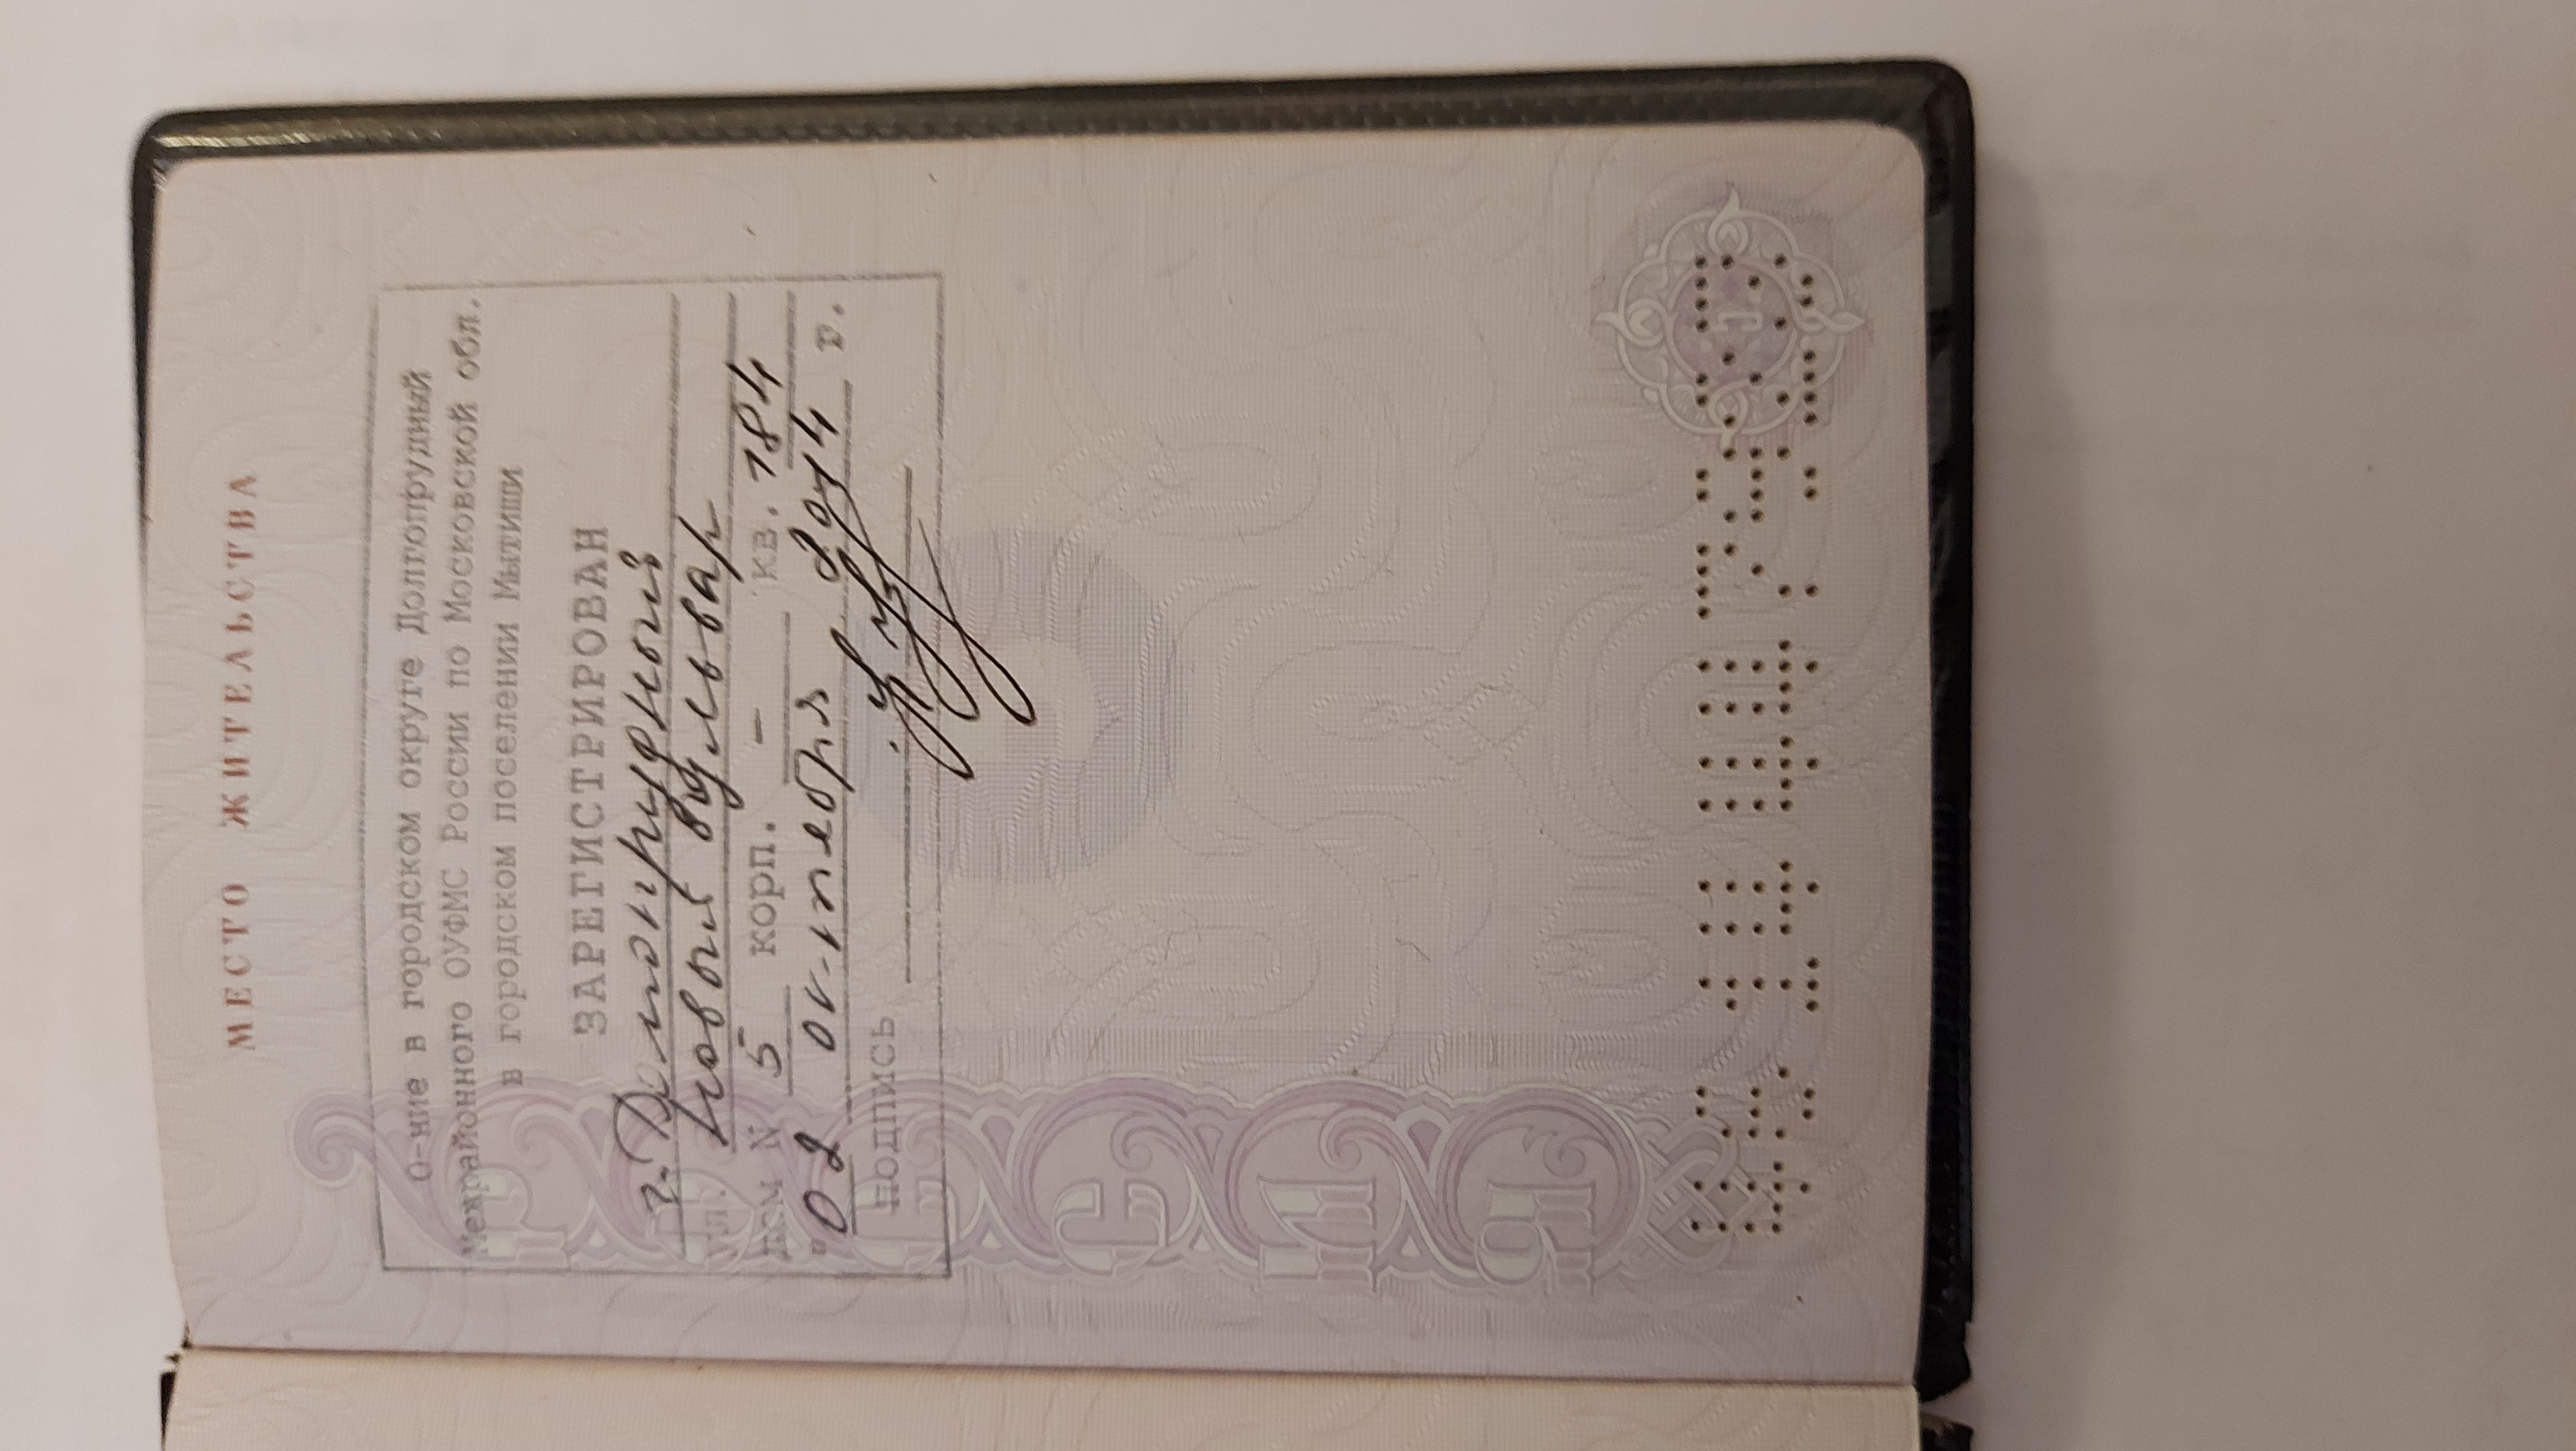 МЕСТО ЖИТЕЛЬСТВА
О-ние в городском округе Долгопрудный
Межрайонного ОУФМС России по Московской обл.
в городском поселении Мытищи
ЗАРЕГИСТРИРОВАН
г. Долгопрудный
ул. Новый бульвар
дом N 5 корп. - кв. 184
" 02 октября 2014 г.
подпись
РОССИЯ
46 14 447925